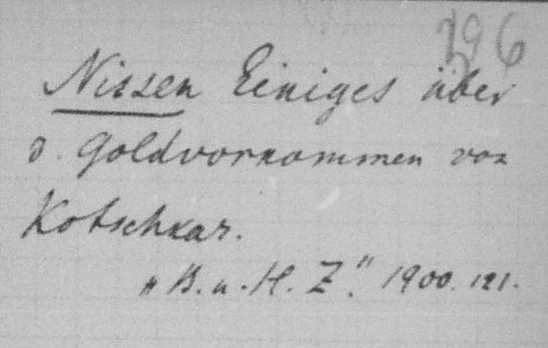 296
Nissen Einiges über
d. Goldvorkommen von
Kotschkar.
„B. u. H. Z." 1900. 121.